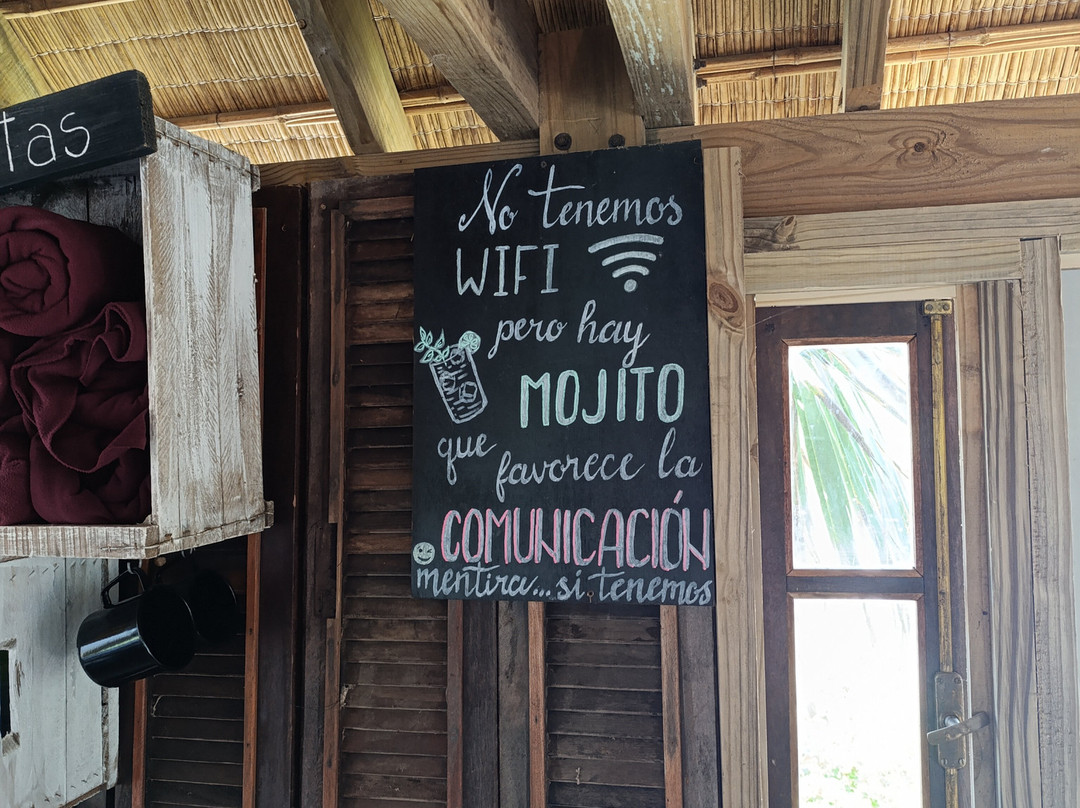 No tenemos
WIFI
pero hay
MOJITO
que favorece la
COMUNICACIÓN
mentira... si tenemos